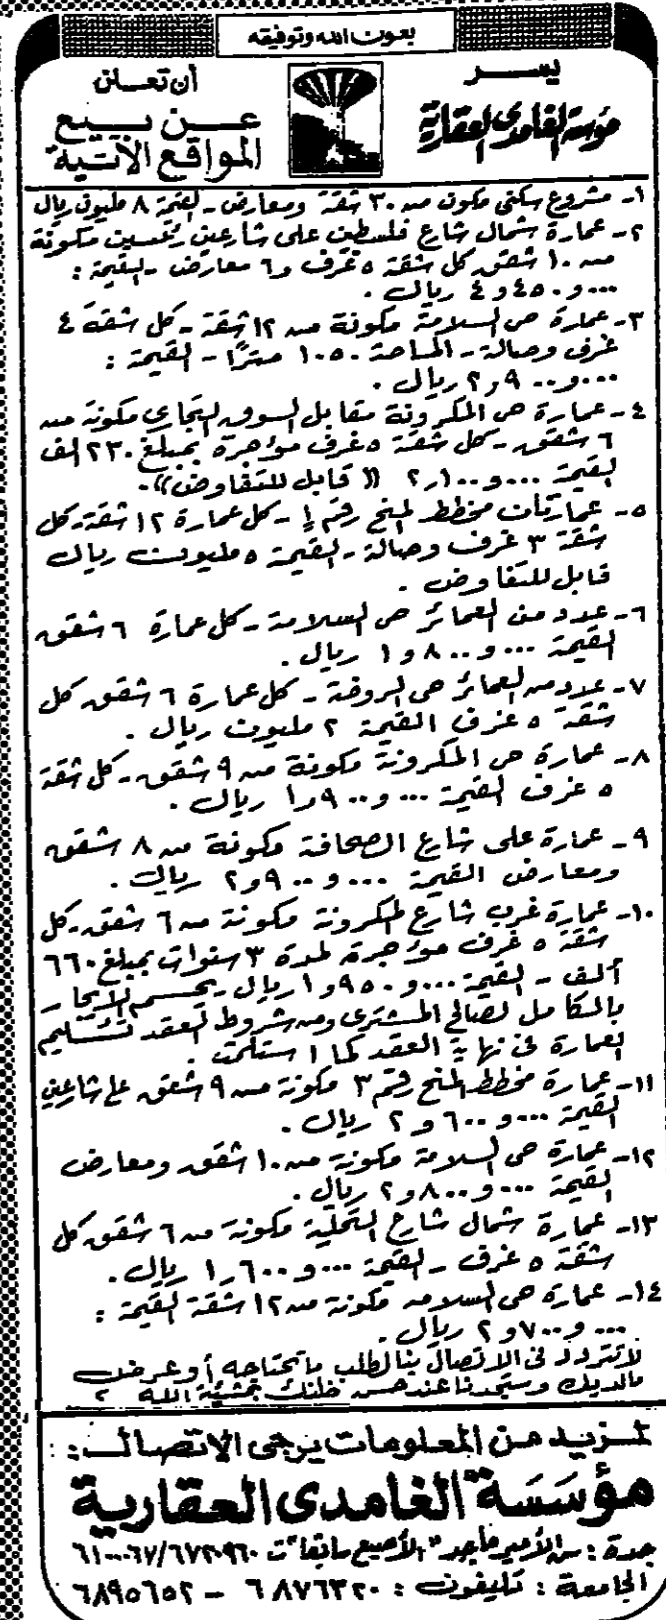 بعون الله وتوفيقه
يسر
مؤسسة الغامدى العقارية
أن تعلن
عن بيع
المواقع الآتية
١- مشروع سكني مكون من ٣٠ شقة ومعارض - القيمة ٨ مليون ريال
٢- عمارة شمال شارع فلسطين على شارعين رئيسين مكونة
من ١٠ شقق كل شقة ٥ غرف و٦ معارض - القيمة :
٠٠٠و٤٥٠و٤ ريال .
٣- عمارة حي السلامة مكونة من ١٢ شقة - كل شقة ٤
غرف وصالة - المساحة ١٠٥٠ مترًا - القيمة :
٠٠٠و٩٠٠و٢ ريال .
٤- عمارة حي المكرونة مقابل السوق التجاري مكونة من
٦ شقق - كل شقة ٥ غرف مؤجرة بمبلغ ٢٣٠ الف
القيمة ٠٠٠و١٠٠ر٢ (( قابل للتفاوض )) .
٥- عمارتان مخطط المنح رقم ١ - كل عمارة ١٢ شقة - كل
شقة ٣ غرف وصالة - القيمة ٥ مليون ريال
قابل للتفاوض .
٦- عدد من العمائر حي السلامة - كل عمارة ٦ شقق
القيمة ٠٠٠و٨٠٠و١ ريال .
٧- عدد من العمائر حي الروضة - كل عمارة ٦ شقق كل
شقة ٥ غرف القيمة ٢ مليون ريال .
٨- عمارة حي المكرونة مكونة من ٩ شقق - كل شقة
٥ غرف القيمة ٠٠٠و٩٠٠ر١ ريال .
٩- عمارة على شارع الصحافة مكونة من ٨ شقق
ومعارض القيمة ٠٠٠و٩٠٠و٢ ريال .
١٠- عمارة غرب شارع المكرونة مكونة من ٦ شقق - كل
شقة ٥ غرف مؤجرة لمدة ٣ سنوات بمبلغ ٦٦٠
ألف - القيمة ٠٠٠و٩٥٠و١ ريال - يحسم الايجار
بالكامل لصالح المشترى ومن شروط العقد تسليم
العمارة في نهاية العقد كما استلمت .
١١- عمارة مخطط المنح رقم ٣ مكونة من ٩ شقق على شارعين
القيمة ٠٠٠و٦٠٠و٢ ريال .
١٢- عمارة حي السلامة مكونة من ١٠ شقق ومعارض
القيمة ٠٠٠و٨٠٠و٢ ريال .
١٣- عمارة شمال شارع التحلية مكونة من ٦ شقق كل
شقة ٥ غرف - القيمة ٠٠٠و٦٠٠ر١ ريال .
١٤- عمارة حي السلامه مكونة من ١٢ شقة القيمة :
٠٠٠و٧٠٠و٢ ريال .
لا تتردد في الاتصال بنا لطلب ما تحتاجه أو عرض
مالديك وستجدنا عند حسن ظنك بمشيئة الله
لمزيد من المعلومات يرجى الاتصال :
مؤسَسَة الغامدى العقارية
جدة : ش الأمير ماجد "الأصبع سابقا" ت ٦٧٢٠٩٦٠/
الجامعة : تليفون : ٦٨٧٦٣٢٠ - ٦٨٩٥٦٥٢